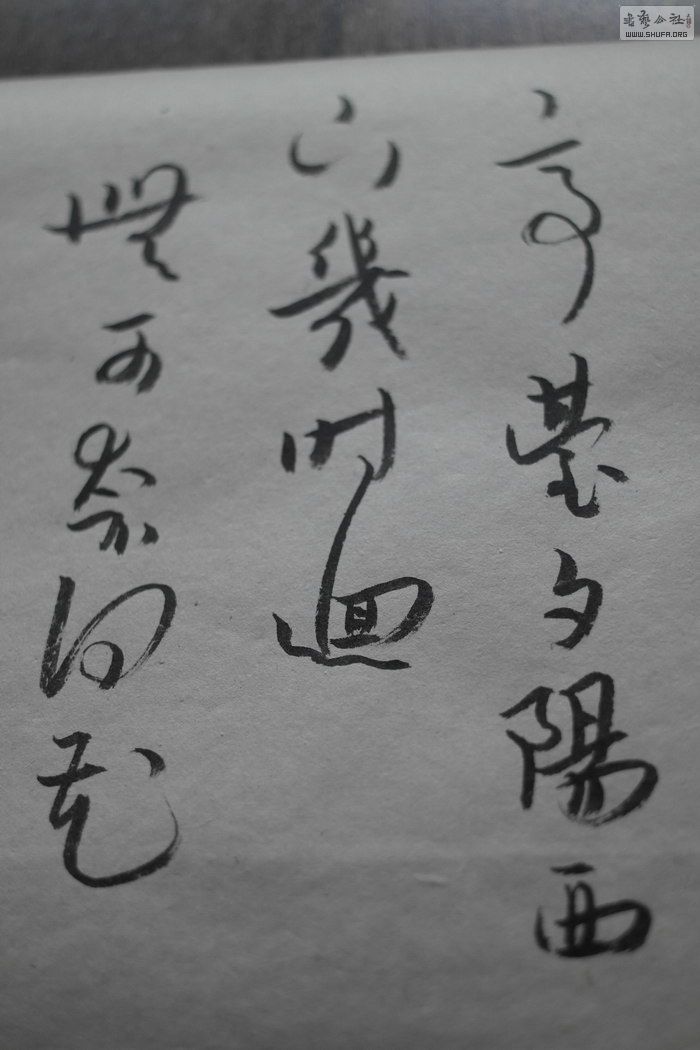 亭臺夕陽西
下幾時迴
無可奈何花
書藝公社
WWW.SHUFA.ORG